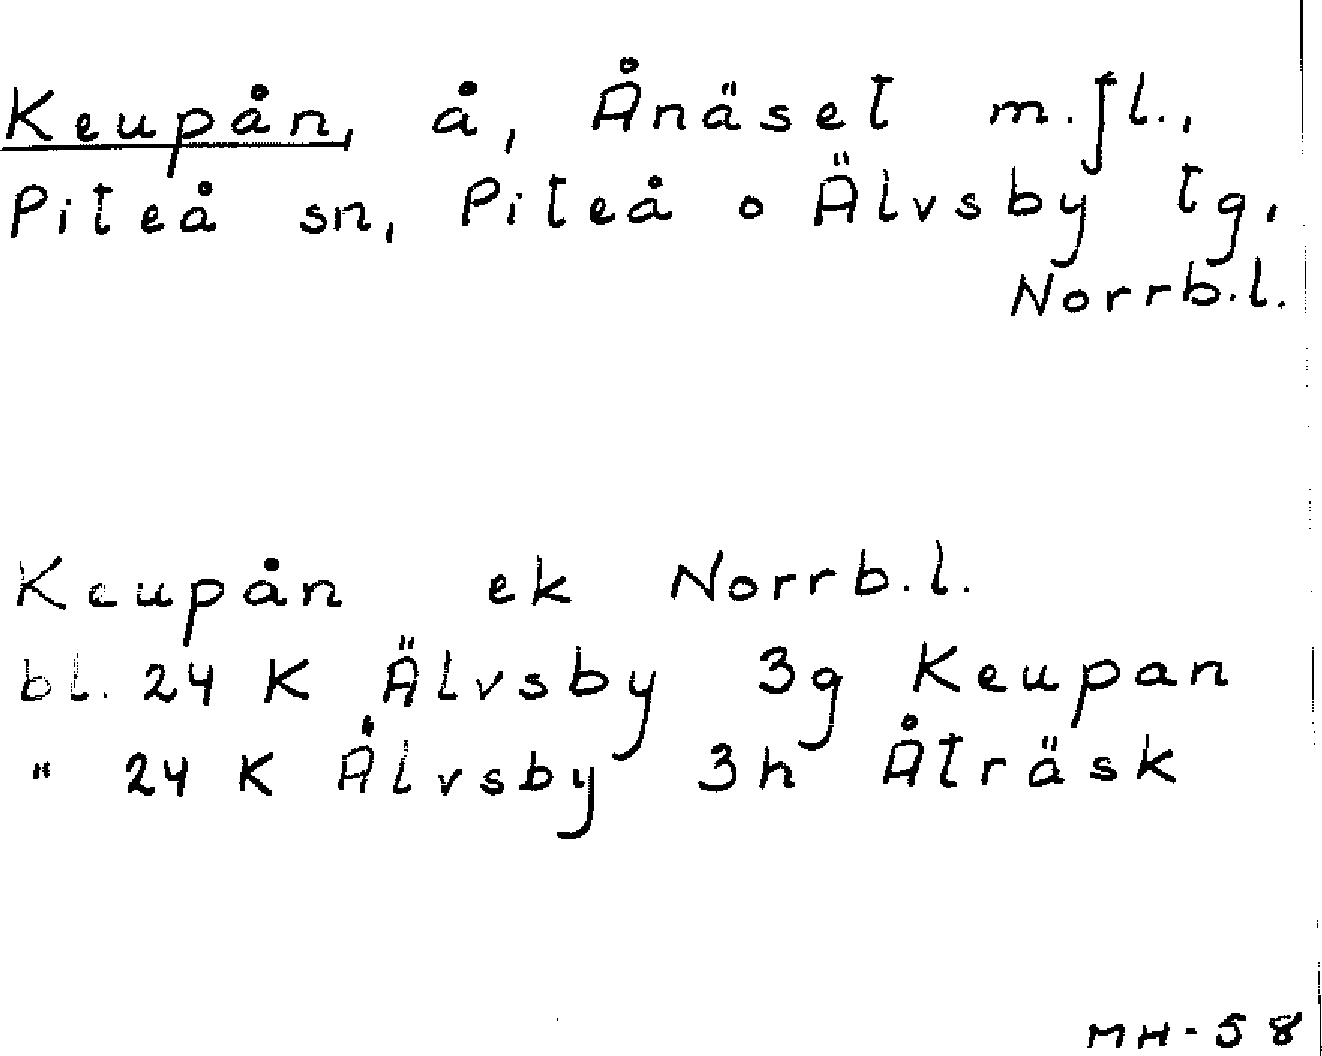 Keupån, å, Ånäset m.fl.,
Piteå sn, Piteå o Älvsby tg,
Norrb.l.
Keupån ek Norrb.l.
bl. 24 K Älvsby 3g Keupan
" 24 K Älvsby 3h Åträsk
MH-58